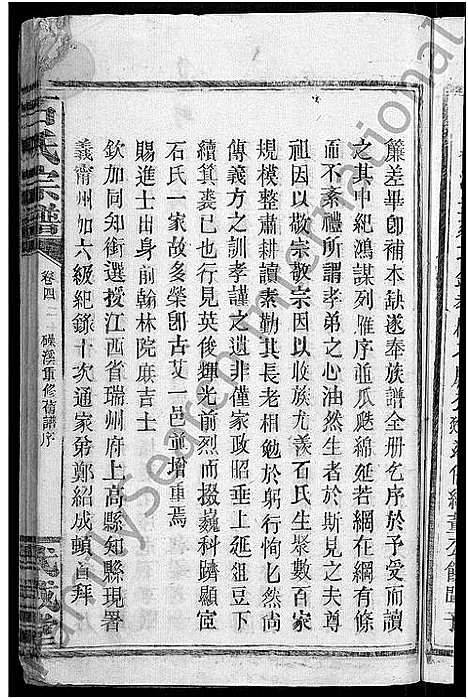 簾差畢卽補本缺遂奉族譜全册乞序於予受而讀
之其中紀鴻謀列雁序蓏瓜瓞綿延若網在綱有條
而不紊禮所謂孝弟之心油然生者於斯見之夫尊
祖因以敬宗敬宗因以收族尤羨石氏生聚數百家
規模整肅耕讀素勤其長老相勉於躬行恂化然尚
傳義方之訓孝謹之遺非僅家政昭垂上延俎豆下
續箕裘已也行見英俊輝光前烈而掇巍科躋顯宦
石氏一家故多榮卽古艾一邑並增重焉
賜進士出身前翰林院庶吉士
欽加同知銜選授江西省瑞州府上高縣知縣現署
義甯州加六級紀錄十次通家弟鄭紹成頓首拜
石氏宗譜
卷四
磜溪重修舊譜序
武威堂
MySearch International